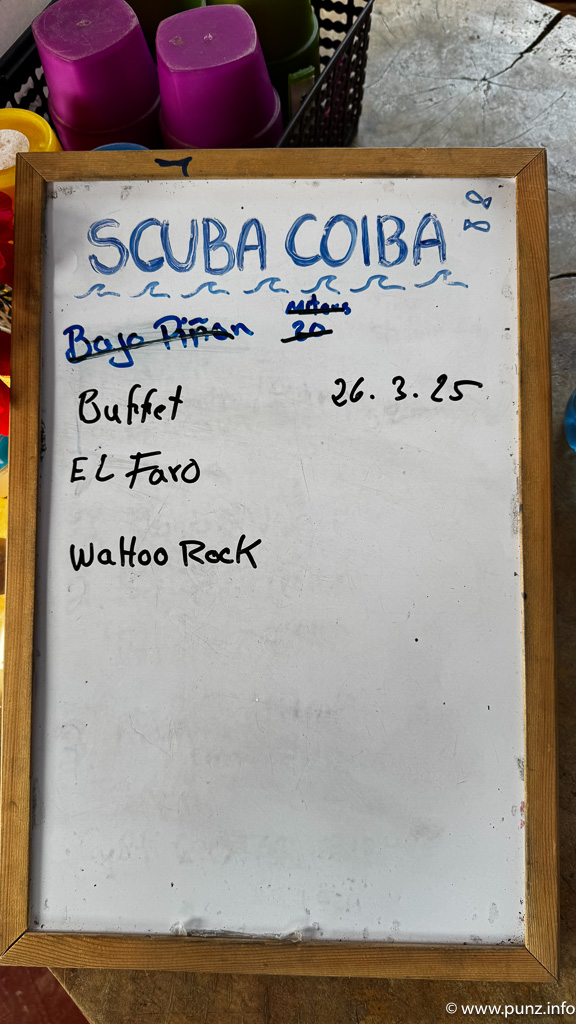 SCUBA COIBA
meters
Bajo Piñon 20
Buffet 26.3.25
EL Faro
Wahoo Rock
© www.punz.info